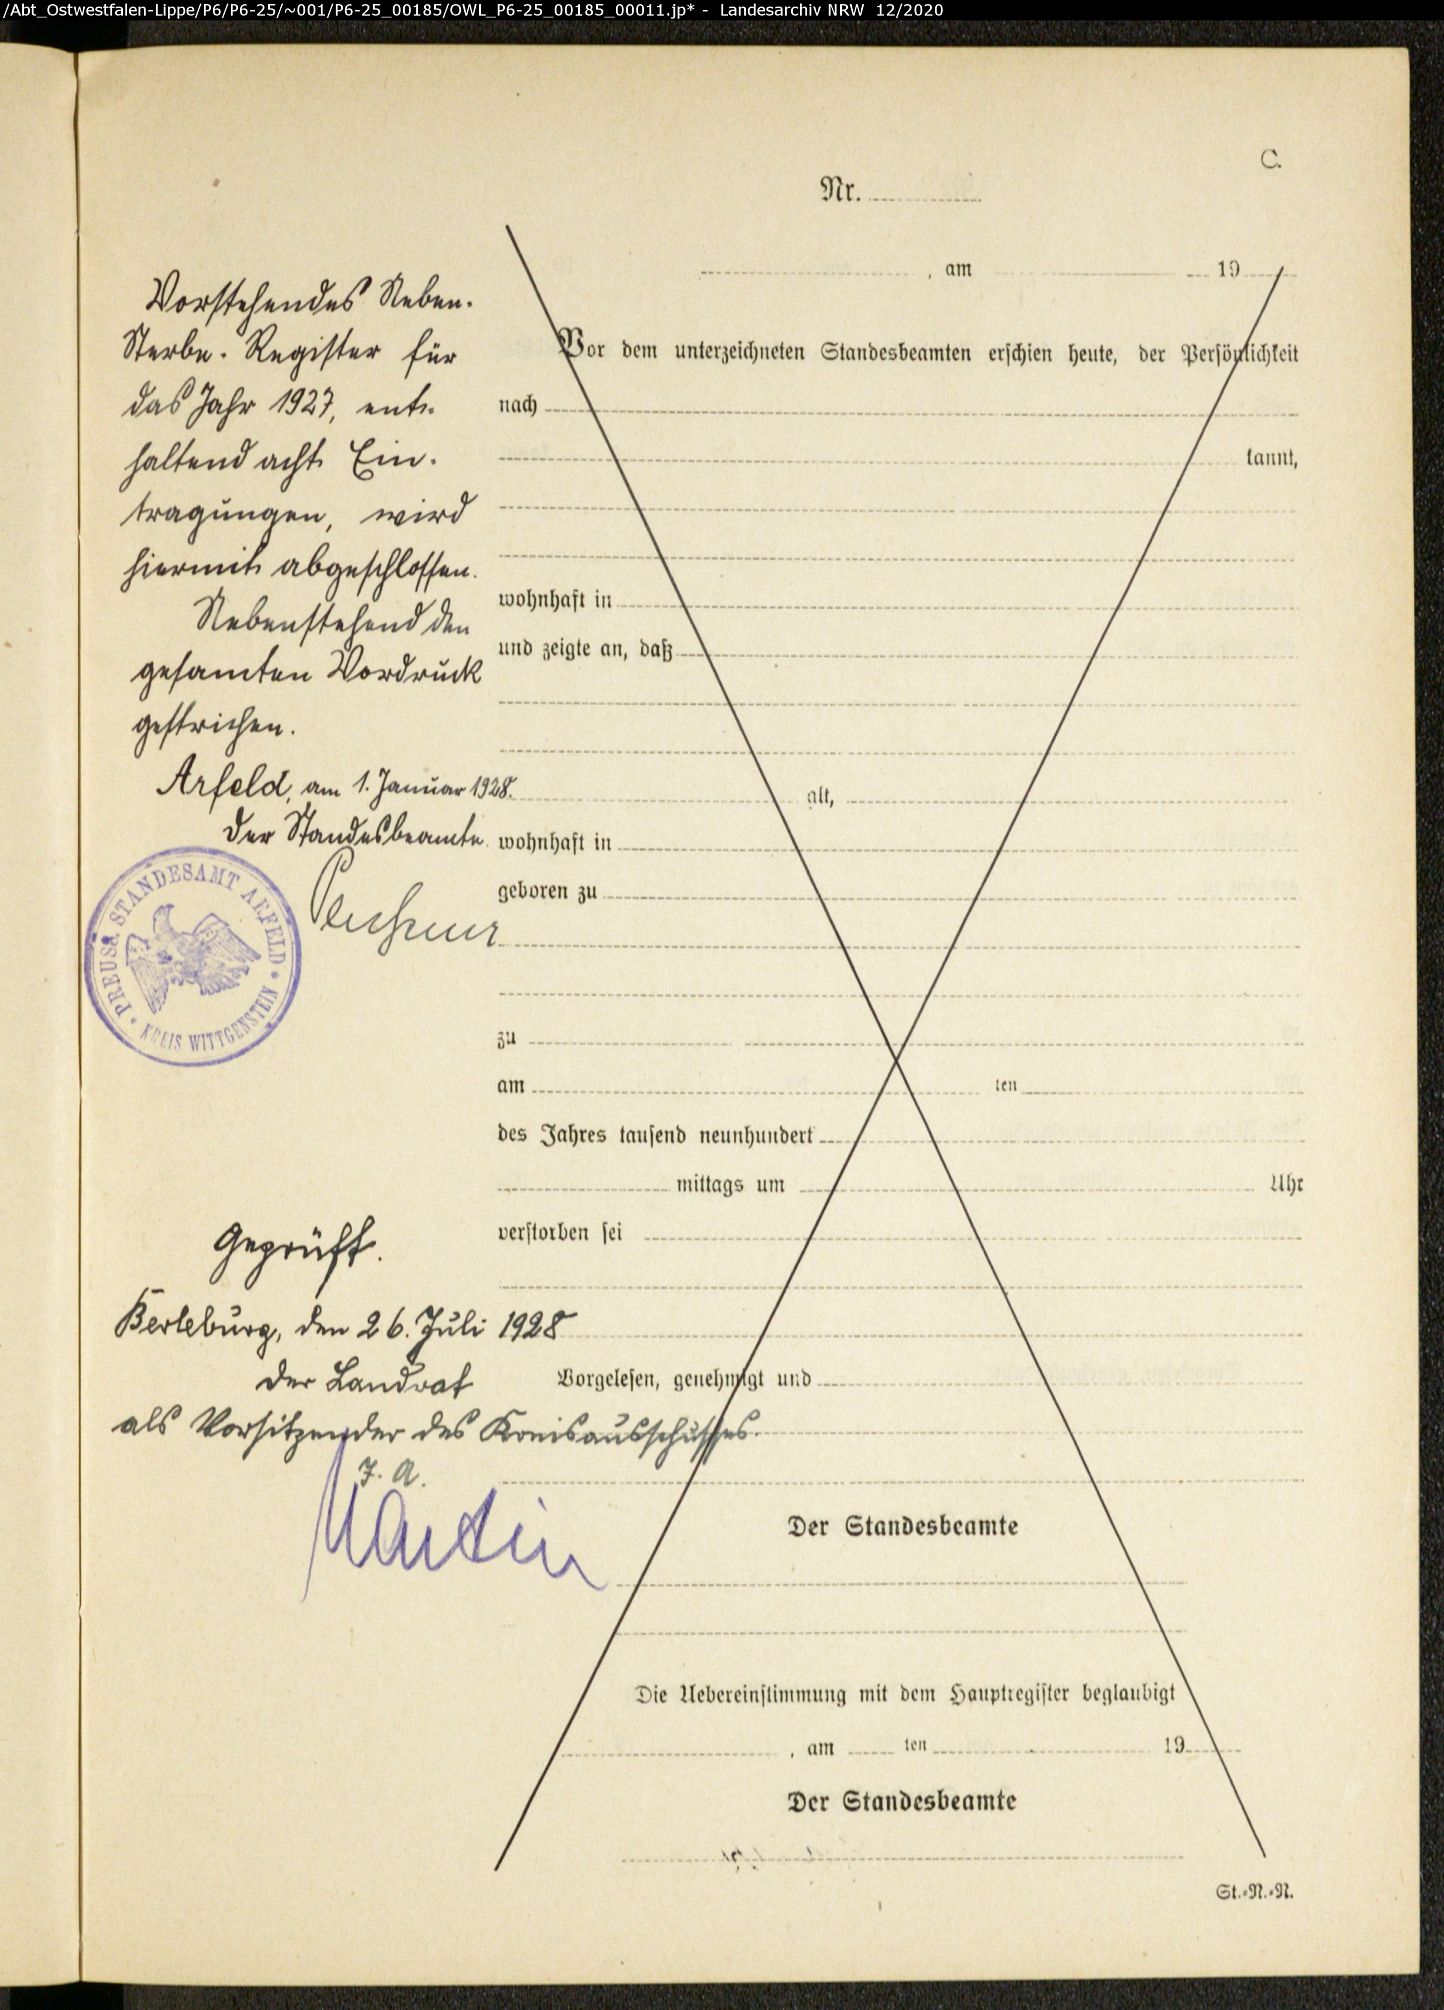 /Abt_Ostwestfalen-Lippe/P6/P6-25/~001/P6-25_00185/OWL_P6-25_00185_00011.jp* - Landesarchiv NRW 12/2020
C.
Nr.
, am 19
Vorstehendes Neben-
Sterbe-Register für
das Jahr 1927, ent-
haltend acht Ein-
tragungen, wird
hiermit abgeschlossen.
Nebenstehend den
gesamten Vordruck
gestrichen.
Arfeld, am 1. Januar 1928.
Der Standesbeamte
PREUSS. STANDESAMT ARFELD
* KREIS WITTGENSTEIN *
Geprüft.
Berleburg, den 26. Juli 1928
Der Landrat
als Vorsitzender des Kreisausschusses.
J. A.
Martin
Vor dem unterzeichneten Standesbeamten erschien heute, der Persönlichkeit
nach
kannt,
wohnhaft in
und zeigte an, daß
alt,
wohnhaft in
geboren zu
zu
am ten
des Jahres tausend neunhundert
mittags um Uhr
verstorben sei
Vorgelesen, genehmigt und
Der Standesbeamte
Die Uebereinstimmung mit dem Hauptregister beglaubigt
, am ten 19
Der Standesbeamte
St.-N.-N.